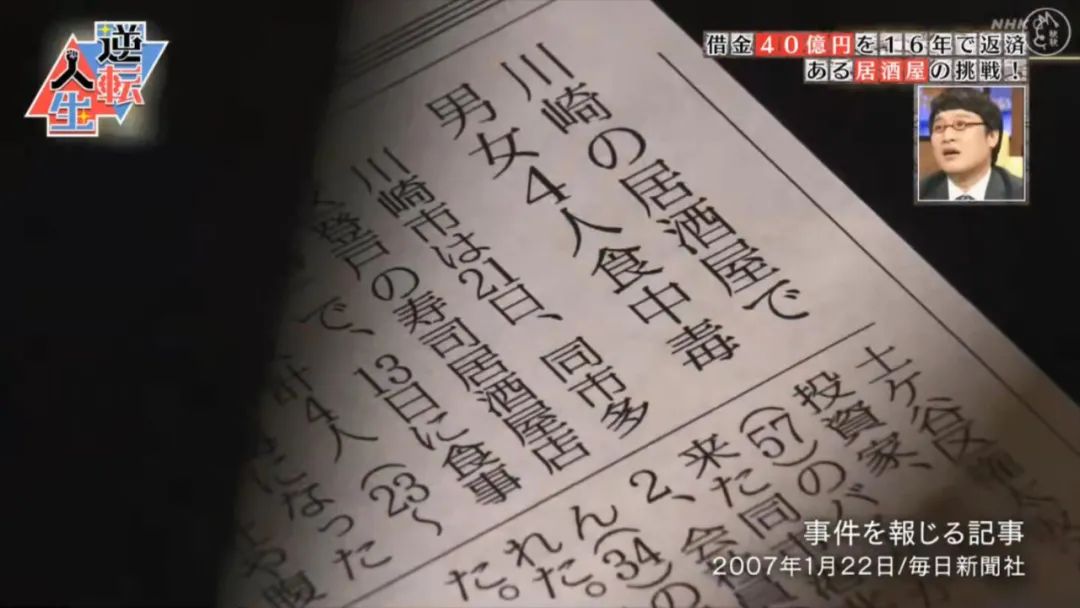 逆転人生
NHK
借金40億円を16年で返済
ある居酒屋の挑戦!
川崎の居酒屋で
男女4人食中毒
川崎市は21日、同市多
登戸の寿司居酒屋店
で、13日に食事
計4人(23〜
になった
や腹
土ケ谷区
投資家、
(57)のバ
来た同
2、会
ん(34)の
れた。
た。
事件を報じる記事
2007年1月22日/毎日新聞社